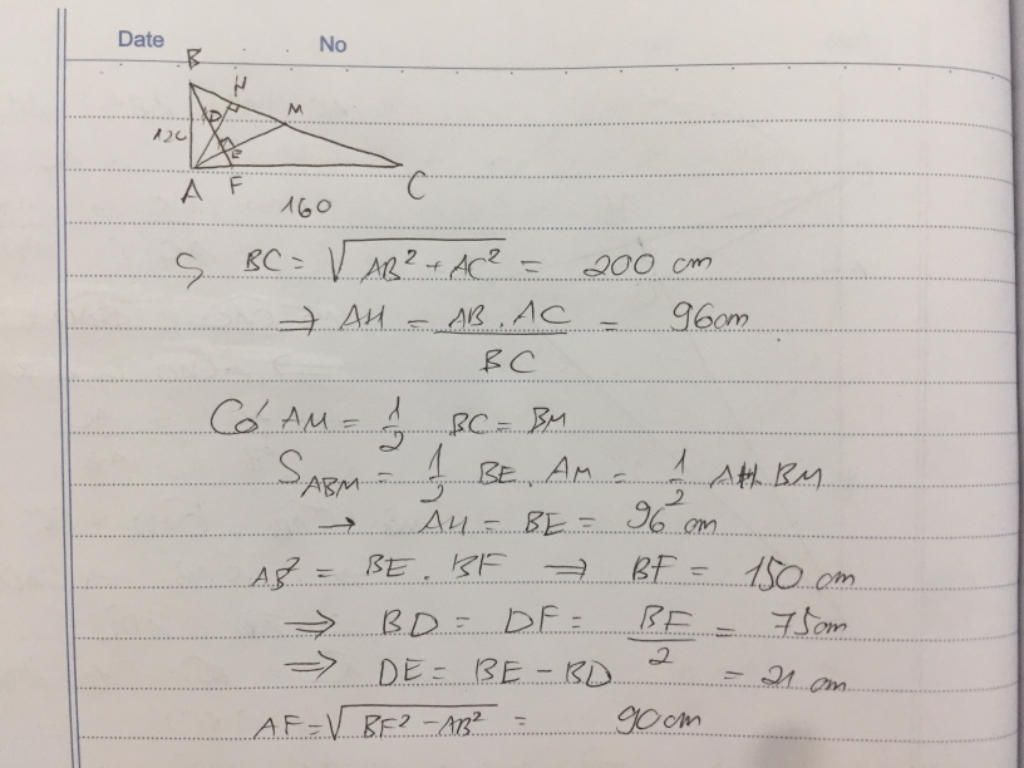 Date No
B
H
M
D
120
E
A F C
160
BC = √(AB² + AC²) = 200 cm
⇒ AH = AB . AC / BC = 96cm
Có AM = 1/2 BC = BM
S_ABM = 1/2 BE . AM = 1/2 AH . BM
→ AH = BE = 96 cm
AB² = BE . BF ⇒ BF = 150 cm
⇒ BD = DF = BF / 2 = 75cm
⇒ DE = BE - BD = 21 cm
AF = √(BF² - AB²) = 90cm